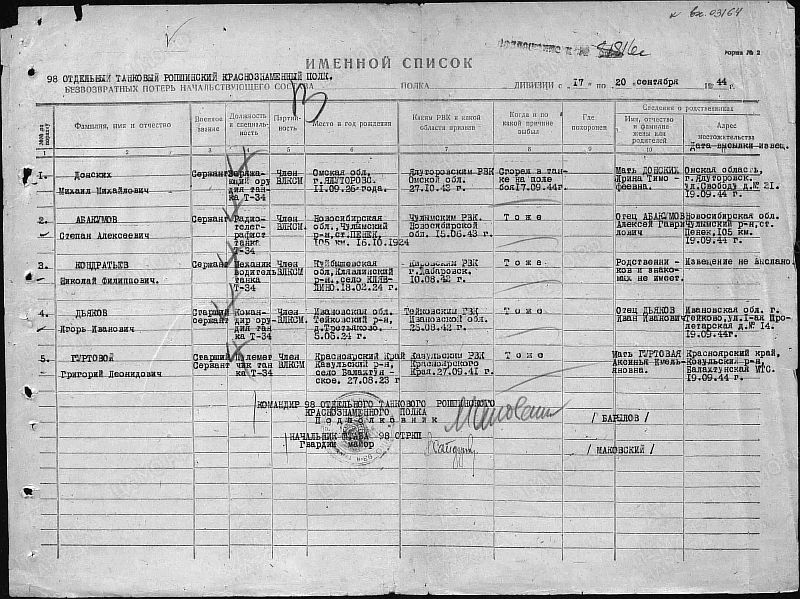 к вх. 03164
Форма № 2
ИМЕННОЙ СПИСОК
98 ОТДЕЛЬНЫЙ ТАНКОВЫЙ РОПШИНСКИЙ КРАСНОЗНАМЕННЫЙ ПОЛК.
БЕЗВОЗВРАТНЫХ ПОТЕРЬ НАЧАЛЬСТВУЮЩЕГО СОСТАВА ПОЛКА ДИВИЗИИ с 17 по 20 сентября 1944 г.
Фамилия, имя и отчество
Военное звание
Должность и специальность
Партийность
Место и год рождения
Каким РВК и какой области призван
Когда и по какой причине выбыл
Где похоронен
Сведения о родственниках
Имя, отчество и фамилия жены или родителей
Адрес местожительства
Дата высылки извещ.
1 2 3 4 5 6 7 8 9 10 11
1. Донских Сержант Заряжа- Член Омская обл. Ялуторовским РВК Сгорел в тан- Мать ДОНСКИХ Омская область,
Михаил Михайлович ющий ору ВЛКСМ г.ЯЛУТОРОВО. Омской обл. ке на поле Ирина Тимо- г.Ялуторовск.
дия тан 11.09.26 года. 27.10.43 г. боя 17.09.44г. феевна. ул.Свободу д.№ 21.
ка Т-34 19.09.44 г.
2. АБАКУМОВ Сержант Радио- Член Новосибирская Чулымским РВК. Тоже Отец АБАКУМОВ Новосибирская обл.
Степан Алексеевич телег- ВЛКСМ. обл., Чулымский Новосибирской Алексей Гаври Чулымский р-н, ст.
рафист р-н, ст.ПЕНЕК, обл. 15.06.43 г. лович Пенек, 105 км
танка 105 км. 16.10.1924 19.09.44 г.
Т-34
3. КОНДРАТЬЕВ Сержант Механик Член Куйбышевская Кировским РВК Тоже Родственни - Извещение не выслано.
Николай Филиппович. водитель ВЛКСМ. обл. Клявлинский г.Хабаровск. ков и знако-
танка р-н. село КЛЯВ- 10.08.42 г. мых не имеет.
Т-34 ЛИНО. 18.02.24 г.
4. ДЬЯКОВ Старший Коман- Член Ивановская обл. Тейковским РВК Тоже Отец ДЬЯКОВ Ивановская обл. г.
Игорь Иванович сержант дир ору ВЛКСМ. Тейковский р-н, Ивановской обл. Иван Иванович Тейково, ул. 1-ая Про-
дия тан д.Третьяково. 25.08.42 г. летарская д.№ 14.
ка Т-34 5.05.24 г. 19.09.44г.
5. ГУРТОВОЙ Старший Пулемет Член Красноярский Край Казульским РВК Тоже Мать ГУРТОВАЯ Красноярский край,
Григорий Леонидович Сержант чик тан ВЛКСМ Казульский р-н, Красноярского Аксинья Емель- Козульский р-н,
ка Т-34 село Балахтун - Края. 27.09.41 г. яновна. Балахтунская МТС.
ское. 27.08.23 г 19.09.44 г.
КОМАНДИР 98 ОТДЕЛЬНОГО ТАНКОВОГО РОПШИНСКОГО
КРАСНОЗНАМЕННОГО ПОЛКА
Подполковник / БАРЫЛОВ /
НАЧАЛЬНИК ШТАБА 98 ОТРКП
Гвардии майор / МАКОВСКИЙ /